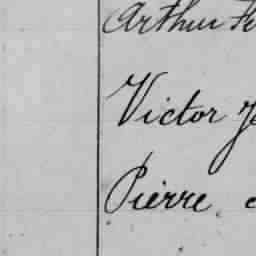 Arthur
Victor
Pierre